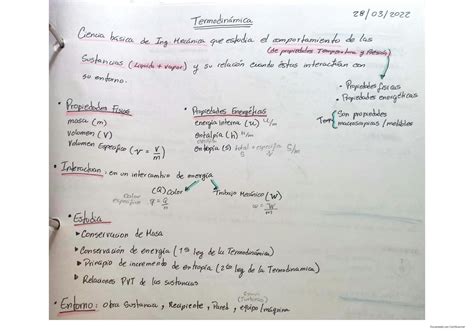 Termodinámica
28/03/2022
Ciencia básica de Ing. Mecánica que estudia el comportamiento de las
(de propiedades Temperatura y Presión)
Sustancias (Líquido + vapor) y su relación cuando éstas interactúan con
su entorno.
• Propiedades físicas
• Propiedades energéticas
Term
Son propiedades
macroscópicas / medibles
• Propiedades Físicas
masa (m)
volumen (V)
Volumen Específico (v = V/m)
Propiedades Energéticas
energía interna (u) U/m
entalpía (h) H/m
entropía (s) total + específica S/m
• Interactúan: en un intercambio de energía
(Q) Calor
Calor específico q = Q/m
Trabajo Mecánico (W)
w = W/m
• Estudia
▸ Conservación de Masa
▸ Conservación de energía (1ra ley de la Termodinámica)
▸ Principio de incremento de entropía (2da ley de la Termodinámica)
▸ Relaciones PVT de las sustancias
(Turbina)
• Entorno: otra Sustancia, Recipiente, Pared, equipo/máquina